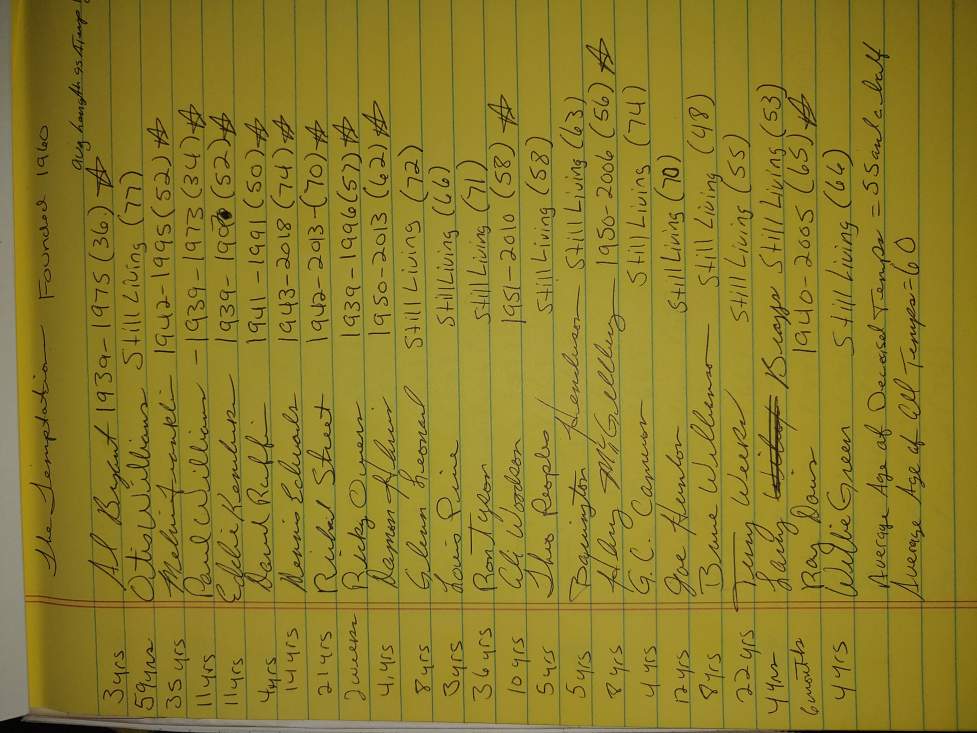 The Temptation Founded 1960
avg length as a Temp
3 yrs Al Bryant 1939-1975 (36) ☆
59 yrs Otis Williams Still Living (77)
35 yrs Melvin Franklin 1942-1995 (52) ☆
11 yrs Paul Williams - 1939-1973 (34) ☆
11 yrs Eddie Kendricks 1939-1990 (52) ☆
4 yrs David Ruffin 1941-1991 (50) ☆
14 yrs Dennis Edwards 1943-2018 (74) ☆
21 yrs Richard Street 1942-2013-(70) ☆
2 weeks Ricky Owens 1939-1996 (57) ☆
4 yrs Damon Harris 1950-2013 (62) ☆
8 yrs Glenn Leonard Still Living (72)
3 yrs Louis Price Still Living (66)
36 yrs Ron Tyson Still Living (71)
10 yrs Ali Woodson 1951-2010 (58) ☆
5 yrs Theo Peoples Still Living (58)
5 yrs Barrington Henderson Still Living (63)
8 yrs Harry McGillberry 1950-2006 (56) ☆
4 yrs G.C. Cameron Still Living (74)
12 yrs Joe Herndon Still Living (70)
8 yrs Bruce Williamson Still Living (48)
22 yrs Terry Weeks Still Living (55)
4 yrs Larry Braggs Still Living (53)
6 months Ray Davis 1940-2005 (65) ☆
4 yrs Willie Green Still Living (66)
Average Age of Deceased Temps = 55 and a half
Average Age of All Temps = 60